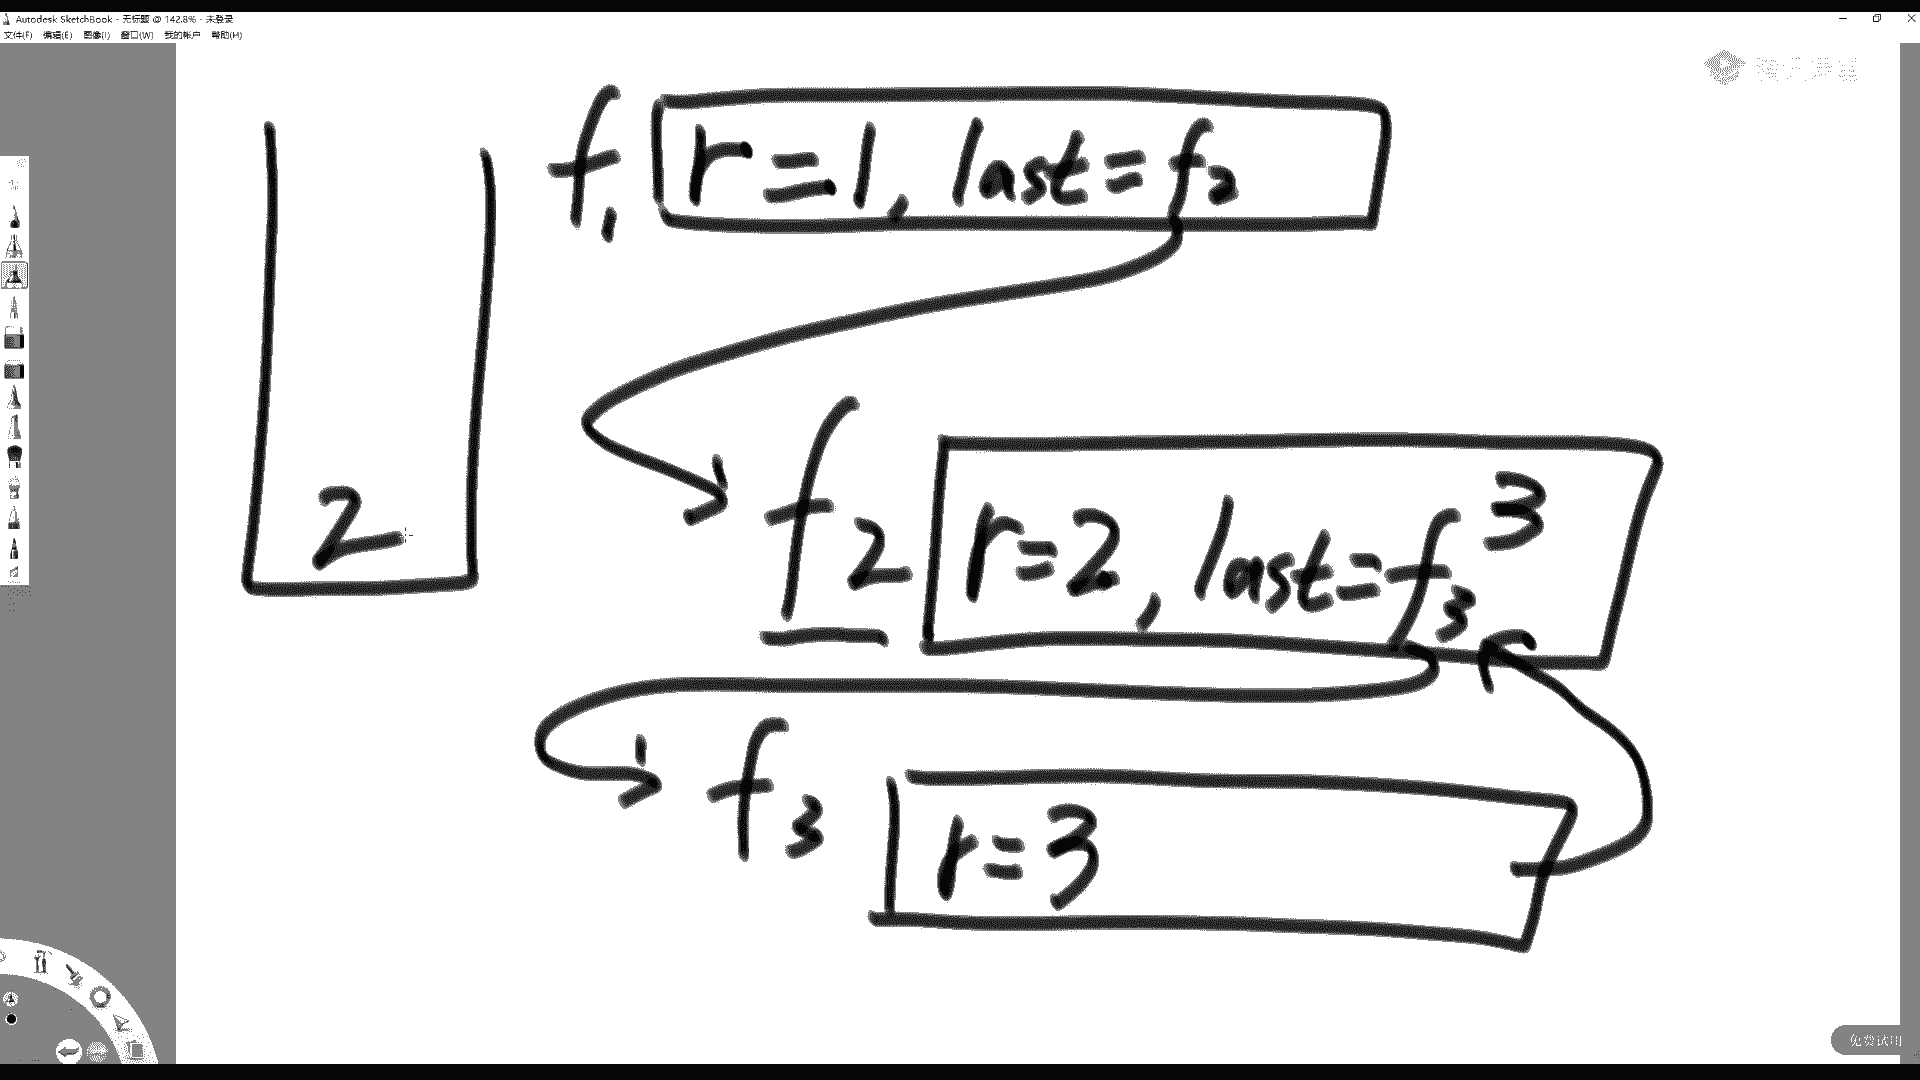 Autodesk SketchBook - 无标题 @ 142.8% - 未登录
文件(F) 编辑(E) 图像(I) 窗口(W) 我的帐户 帮助(H)
f1 r=1, last=f2
2
f2 r=2, last=f3 3
f3 r=3
免费试用